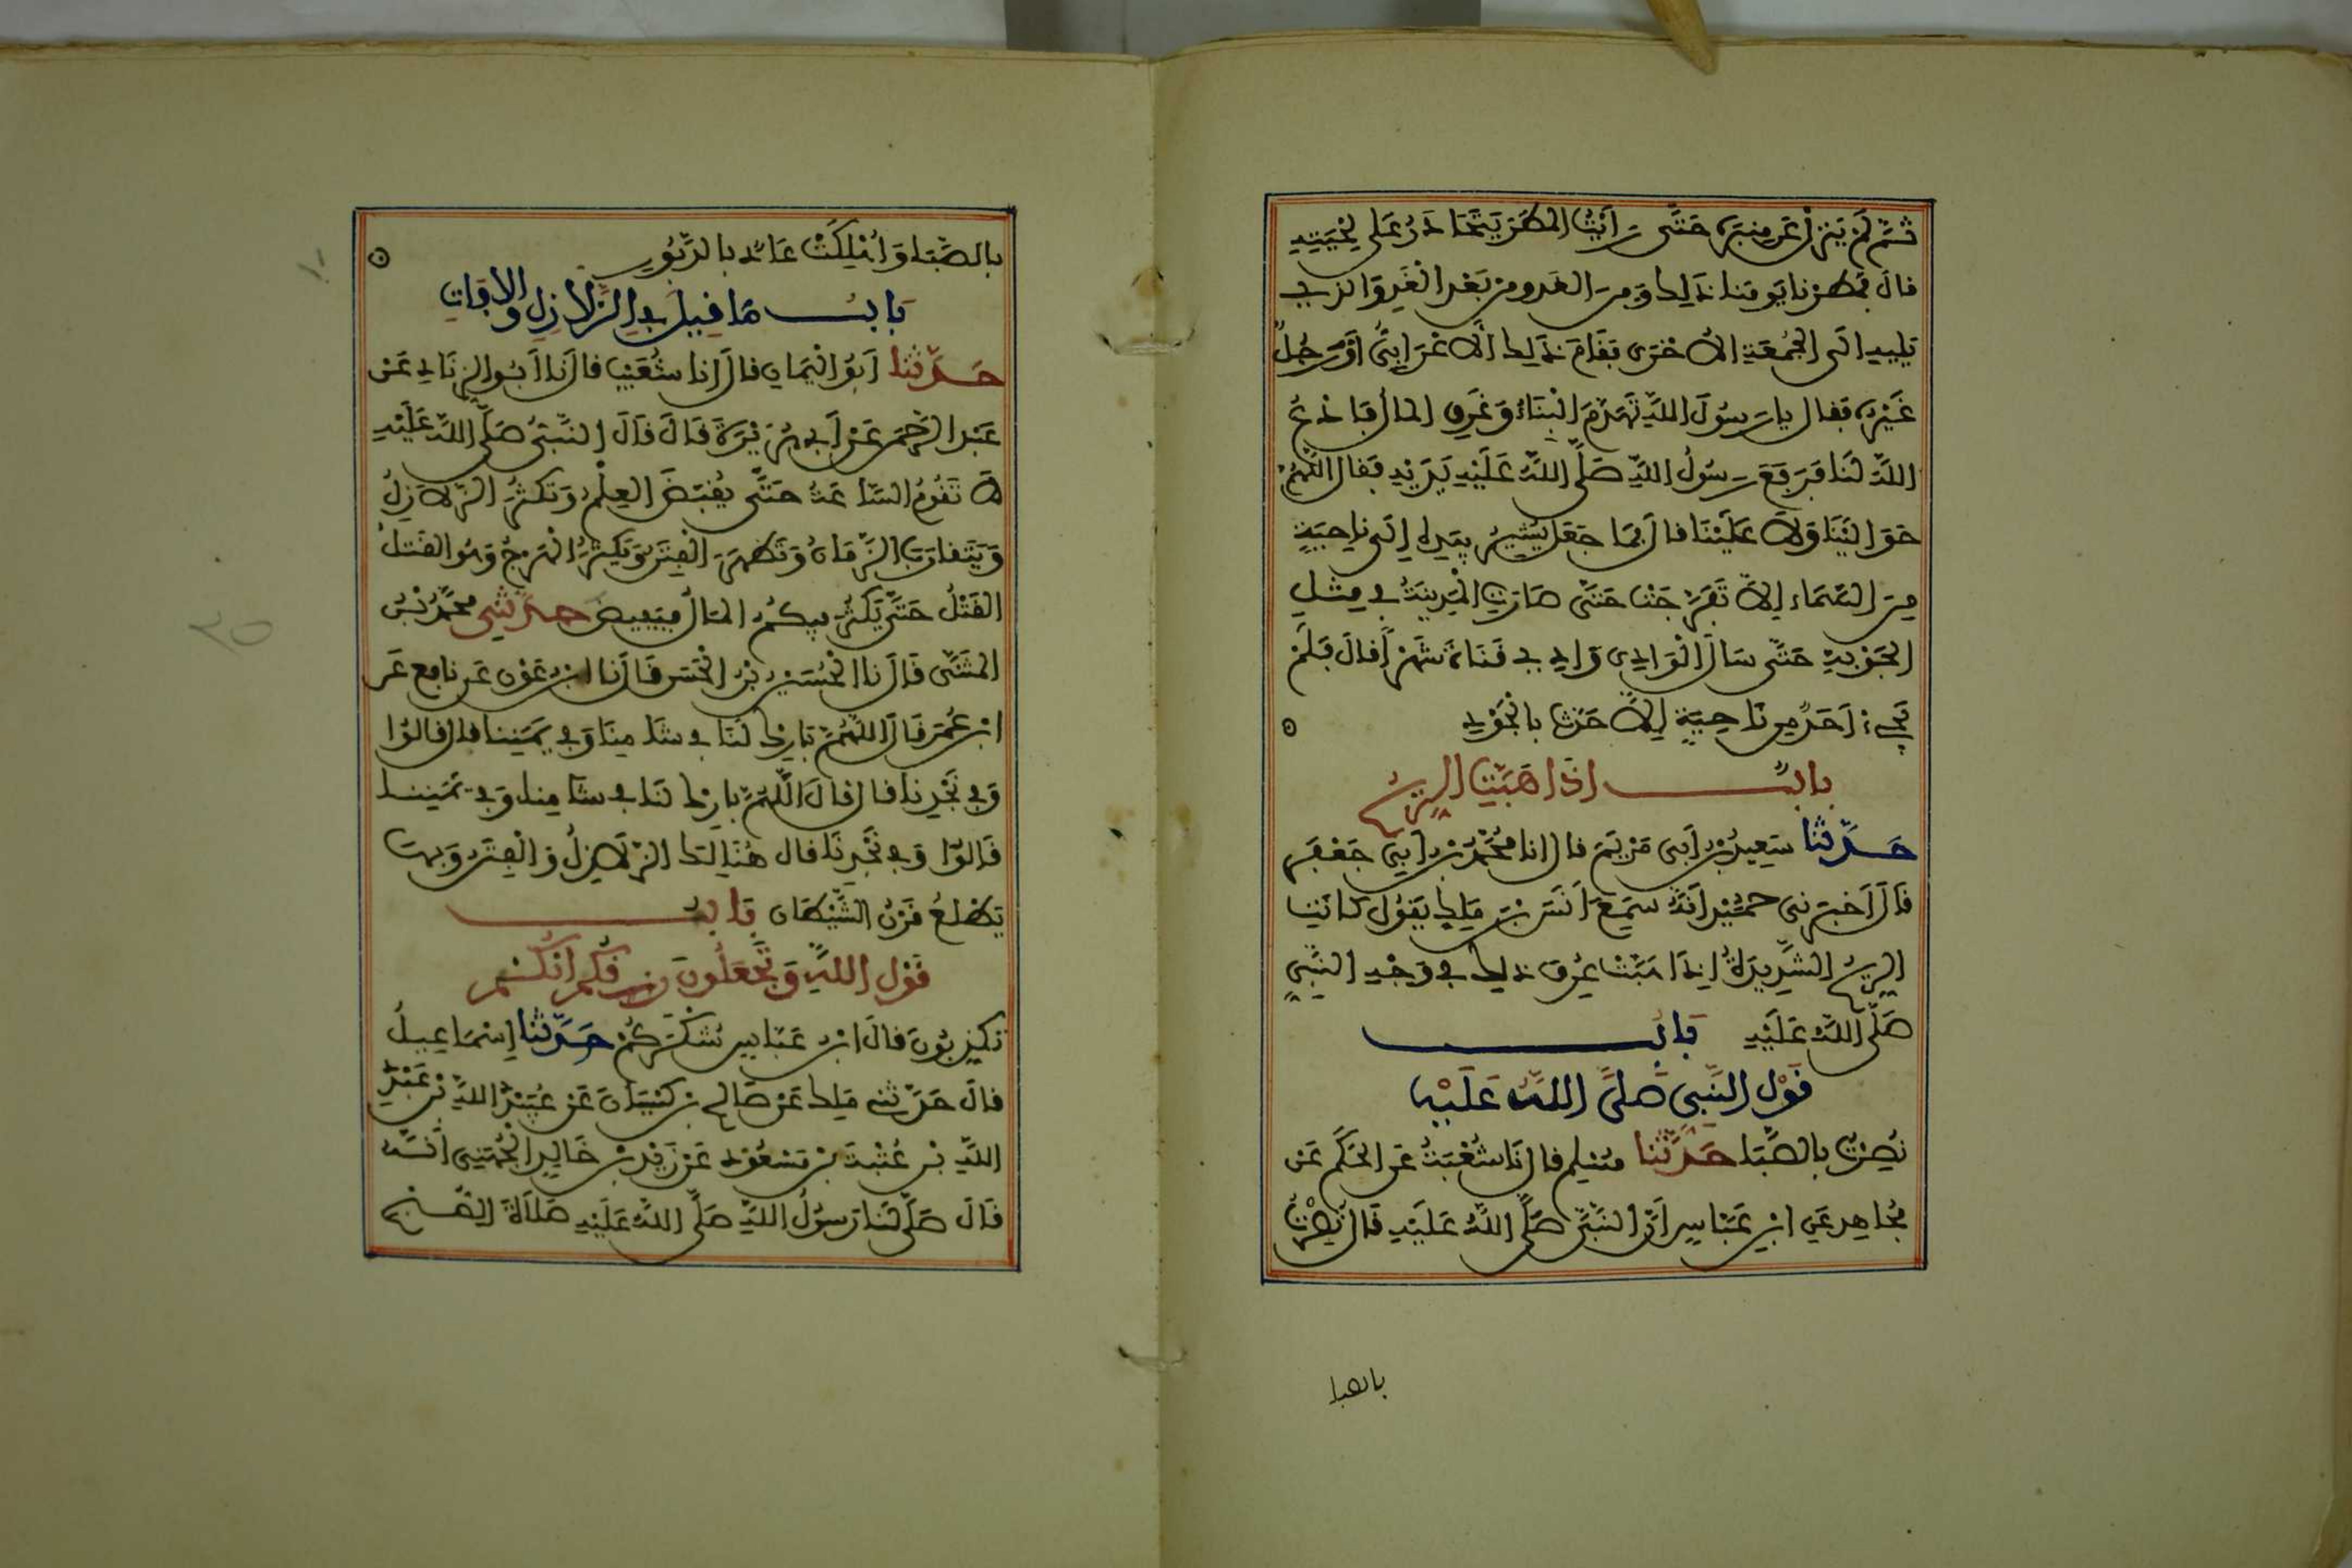 ثُمَّ لَمْ يَنزِلْ عَن مِنبَرِهِ حَتَّى رَأَيْتُ الْمَطَرَ يَتَحَادَرُ عَلَى لِحْيَتِهِ
قالَ فمُطِرْنا يَومَنا ذَلِكَ وَمِنَ الغَدِ ومِن بَعْدِ الْغَدِ وَالذي
يَلِيهِ الَى الجُمُعَةِ الاُخْرَى فَقَامَ ذَلِكَ الاَعْرَابِىُّ أوْ رَجُلٌ
غَيْرُهُ فَقال يا رَسُولَ اللَّهِ تَهَدَّمَ الْبِنَاءُ وَغَرِقَ المالُ فَادْعُ
اللَّهَ لَنَا فَرَفَعَ رَسُولُ اللَّهِ صَلَّى اللَّهُ عَلَيْهِ يَدَيْهِ فقال اللَّهُمَّ
حَوَالَيْنَا وَلاَ عَلَيْنَا قالَ فمَا جَعَلَ يُشِيرُ بِيَدِهِ إِلَى نَاحِيَةٍ
مِنَ السَّمَاءِ إِلاَّ تَفَرَّجَتْ حَتَّى صَارَتِ الْمَدِينَةُ فِي مِثْلِ
الجَوْبَةِ حَتَّى سَالَ الْوَادِى وَادِي قَنَاةَ شَهْراً قالَ فَلَمْ
يَجِيءْ أَحَدٌ مِن نَاحِيَةٍ إِلاَّ حَدَّثَ بِالْجَوْدِ
بابُ اذَا هَبَّتِ الرِّيحُ
حَدَّثَنَا سَعِيدُ بْنُ أَبِى مَرْيَمَ قالَ انا مُحَمَّدُ بْنُ أَبِى جَعْفَرٍ
قَالَ أَخْبَرَنِى حُمَيْدٌ أَنَّهُ سَمِعَ أَنَسَ بْنَ مَلِكٍ يَقُولُ كَانَتِ
الرِّيحُ الشَّدِيدَةُ إِذَا هَبَّتْ عُرِفَ ذلِكَ فِي وَجْهِ النَّبِيِّ
صَلَّى اللَّهُ عَلَيْهِ بَابُ
قَوْلِ النَّبِيِّ صَلَّى اللَّهُ عَلَيْهِ
نُصِرْتُ بِالصَّبَا حَدَّثَنَا مُسْلِم قالَ نَا شُعْبَةُ عَنِ الحَكَمِ عَنْ
مُجَاهِدٍ عَنِ ابْنِ عَبَّاسٍ أَنَّ النَّبِيَّ صَلَّى اللَّهُ عَلَيْهِ قَالَ نُصِرْتُ
بالصبا
بِالصَّبَا وَأُهْلِكَتْ عَادٌ بِالدَّبُورِ
بَابُ مَا قِيلَ فِي الزَّلاَزِلِ وَالاَيَاتِ
حَدَّثَنَا أَبُو الْيَمَانِ قالَ انا شُعَيْبٌ قالَ نَا أَبُو الزِّنَادِ عَنْ
عَبْدِ الرَّحْمَنِ عَنْ أَبِي هُرَيْرَةَ قَالَ قَالَ النَّبِيُّ صَلَّى اللَّهُ عَلَيْهِ
لاَ تَقُومُ السَّاعَةُ حَتَّى يُقْبَضَ العِلْمُ وَتَكْثُرَ الزَّلاَزِلُ
وَيَتَقَارَبَ الزَّمَانُ وَتَظْهَرَ الْفِتَنُ وَيَكْثُرَ الْهَرْجُ وَهُوَ القَتْلُ
القَتْلُ حَتَّى يَكْثُرَ فِيكُمُ المَالُ فَيَفِيضَ حدَّثَنِي مُحَمَّدُ بْنُ
المُثَنَّى قَالَ نَا الْحُسَيْنُ بْنُ الْحَسَنِ قَالَ نَا ابْنُ عَوْنٍ عَن نافِعٍ عَنِ
ابْنِ عُمَرَ قَالَ اللَّهُمَّ بَارِكْ لَنَا فِي شَامِنَا وَفِي يَمَنِنَا قال قالوُا
وَفِي نَجْدِنَا قالَ قالَ اللَّهُمَّ بَارِكْ لَنَا فِي شَامِنَا وَفِي يَمَنِنَا
قَالوُا وَفِي نَجْدِنَا قال هُنَالِكَ الزَّلاَزِلُ وَالْفِتَنُ وَبِهَا
يَطْلُعُ قَرْنُ الشَّيْطَانِ بَابُ
قَوْلِ اللَّهِ وَتَجْعَلُونَ رِزْقَكُمُ أَنَّكُمْ
تُكَذِّبُونَ قالَ ابْنُ عَبَّاسٍ شُكْرَكُمْ حَدَّثَنا إِسْمَاعِيلُ
قالَ حَدَّثَنِي مَلِك عَنْ صَالِحِ بْنِ كَيْسَانَ عَنْ عُبَيْدِ اللَّهِ بْنِ عَبْدِ
اللَّهِ بْنِ عُتْبَةَ بْنِ مَسْعُودٍ عَنْ زَيْدِ بْنِ خَالِدٍ الْجُهَنِيِّ أَنَّهُ
قَالَ صَلَّى لَنَا رَسُولُ اللَّهِ صَلَّى اللَّهُ عَلَيْهِ صَلاَةَ الصُّبْحِ